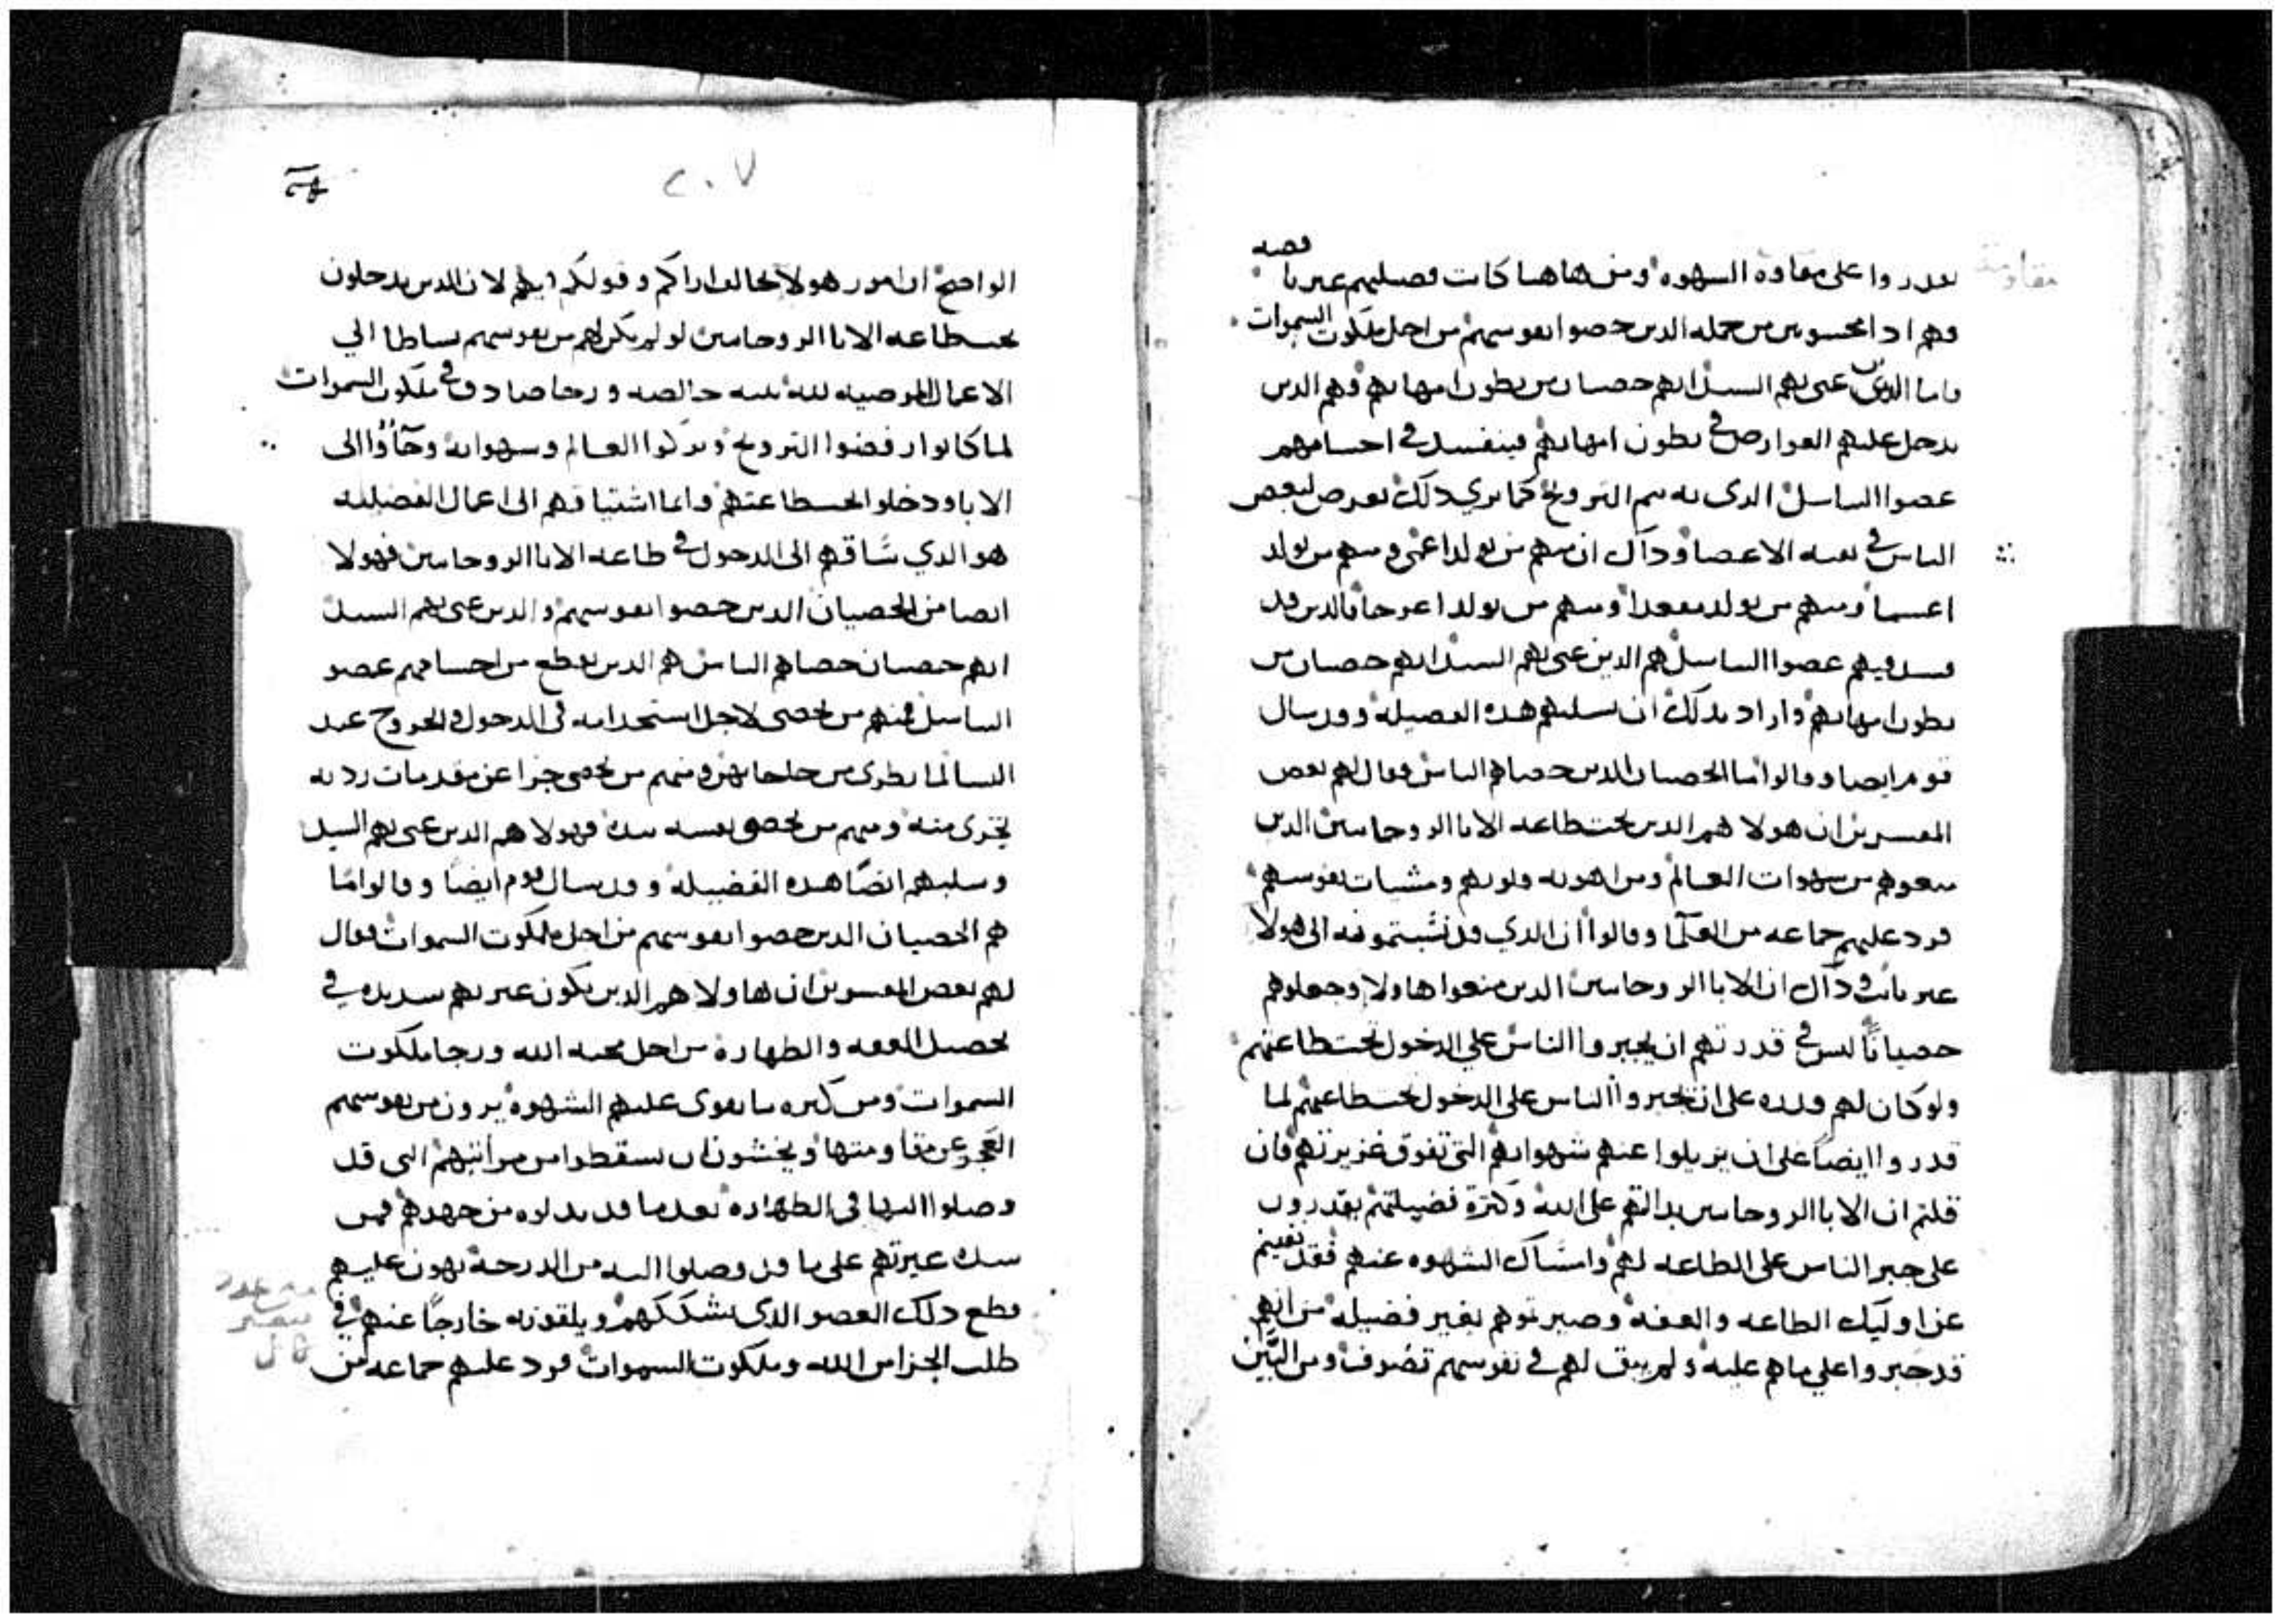 يقدروا على مقاومة الشهوه ومن هاهنا كانت فضيلتهم غير ناقصه
مقاومة
فهم اذا محسوبين من جملة الذين خصوا نفوسهم من اجل ملكوت السموات
واما الذين عنى بهم السيد انهم خصيان من بطون امهاتهم فهم الذين
يدخل عليهم العوارض في بطون امهاتهم فينفسد في اجسامهم
عضوا التناسل الذى به يتم التزويج كما نري ذلك يعرض لبعض
الناس في بقية الاعضا وذاك ان منهم من يولد اعمى ومنهم من يولد
اعسما ومنهم من يولد مقعدا ومنهم من يولد اعرجا فالذين قد
فسد فيهم عضوا التناسل هم الذين عنى بهم السيد انهم خصيان من
بطون امهاتهم واراد بذلك ان يسلبهم هذه الفضيلة وقد سال
قوم ايضا وقالوا اما الخصيان الذين خصاهم الناس فقال لهم بعض
المفسرين ان هولا هم الذين تحت طاعة الابا الروحانيين الذين
منعوهم من شهوات العالم ومن اهوية قلوبهم ومشيات نفوسهم
فرد عليهم جماعه من العلما وقالوا ان الذي قد نسبتموه الى هولا
غير ثابت وذاك ان الابا الروحانيين الذين منعوا هاولا وجعلوهم
خصيانًا ليس في قدرتهم ان يجبروا الناس علي الدخول تحت طاعتهم
ولو كان لهم قدره على ان يجبروا الناس على الدخول تحت طاعتهم لما
قدروا ايضًا على ان يزيلوا عنهم شهواتهم التي تفوق غزيرتهم فان
قلتم ان الابا الروحانيين بدالتهم على الله وكثرة فضيلتهم يقدرون
على جبر الناس على الطاعه لهم وامساك الشهوه عنهم فقد نفيتم
عن اوليك الطاعه والعفة وصيرتموهم بغير فضيله من انهم
قد جبروا علي ما هم عليه ولم يبق لهم في نفوسهم تصرف ومن البيّن
٢٠٧
الواضح ان امور هولا تخالف اراكم وقولكم فيهم لان الذين يدخلون
تحت طاعه الابا الروحانيين لو لم يكن لهم من نفوسهم نشاطا الي
الاعمال المرضيه لله بنيه خالصه ورجا صادق في ملكوت السموات
لما كانوا رفضوا التزويج وتركوا العالم وشهواته وجآؤا الى
الابا ودخلوا تحت طاعتهم وانما اشتياقهم الى اعمال الفضيله
هو الذي ساقهم الى الدخول في طاعه الابا الروحانيين فهولا
ايضا من الخصيان الذين خصوا نفوسهم والذين عنى بهم السيد
انهم خصيان خصاهم الناس هم الذين يقطع من اجسامهم عضو
التناسل فمنهم من يخصى لاجل استخدامه فى الدخول والخروج عند
النسا لما يطرى من حاجاتهن ومنهم من يخصى جزا عن مقدمات رديه
تجرى منه ومنهم من يخصى نفسه بيده فهولا هم الذين عنى بهم السيد
وسلبهم ايضًا هذه الفضيله وقد سال قوم ايضًا وقالوا امّا
هم الخصيان الذين خصوا نفوسهم من اجل ملكوت السموات فقال
لهم بعض المفسرين ان هاولا هم الذين يكون غيرتهم شديده في
تحصيل العفه والطهاره من اجل محبه الله ورجا ملكوت
السموات ومن كثره ما يقوى عليهم الشهوة يرون من نفوسهم
العجز عن مقاومتها ويخشون ان يسقطوا من مراتبهم التى قد
وصلوا اليها فى الطهاره بعد ما قد بذلوه من جهدهم فمن
شدة غيرتهم على ما قد وصلوا اليه من الدرجة يهون عليهم
قطع ذلك العضو الذى يشككهم ويلقونه خارجًا عنهم في
طلب الجزا من الله وملكوت السموات فرد عليهم جماعه من